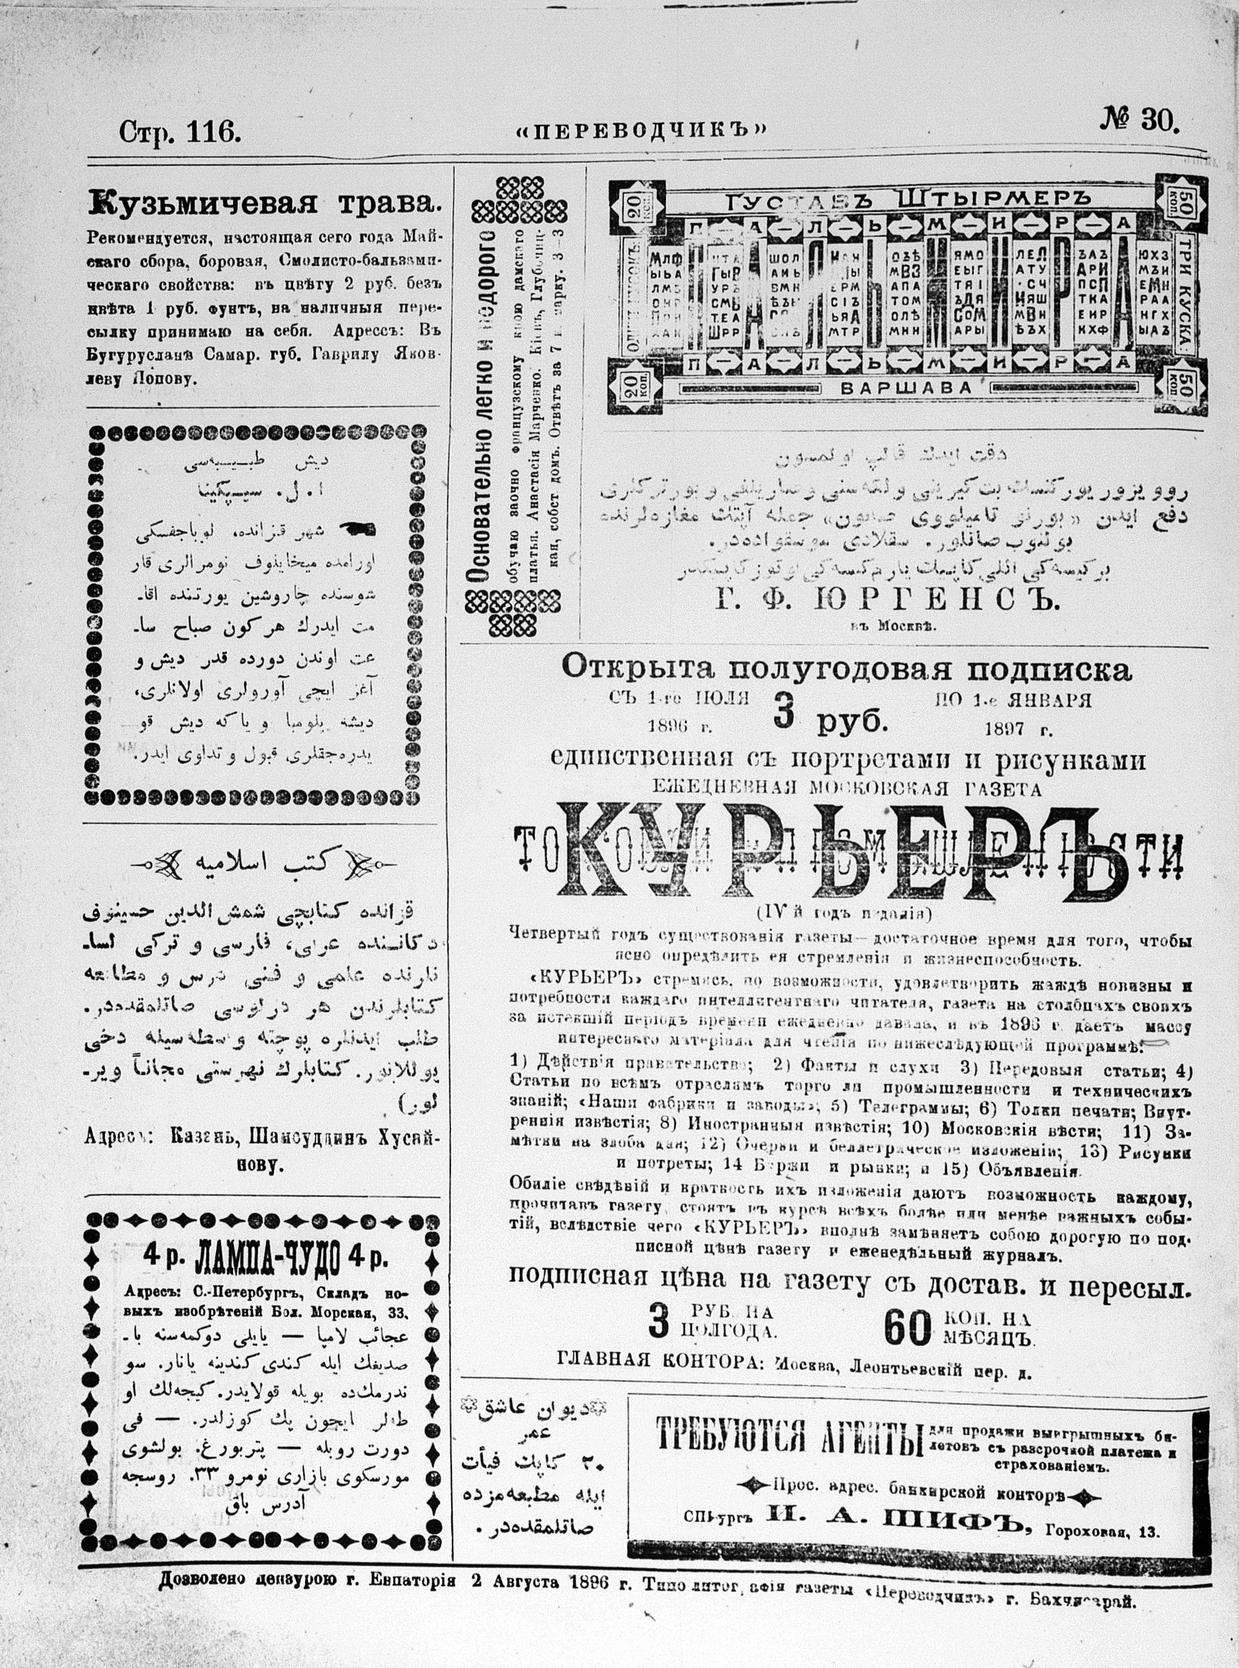 Стр. 116.
«ПЕРЕВОДЧИКЪ»
№ 30.
Кузьмичевая трава.
Рекомендуется, настоящая сего года Май-
скаго сбора, боровая, Смолисто-бальзами-
ческаго свойства: въ цвѣту 2 руб. безъ
цвѣта 1 руб. фунтъ, на наличныя пере-
сылку принимаю на себя. Адрессъ: Въ
Бугурусланѣ Самар. губ. Гаврилу Яков-
леву Попову.
ديش طبيبه‌سی
ا. ل. سيپكينا
شهر قزانده، لوباچفسكی
اورامده ميخايلوف نومرالری قار
شوسنده چاروشين يورتنده اقا۔
مت ايدرك هركون صباح سا۔
عت اوندن دورده قدر ديش و
آغز ايچی آورولری اولانلری،
ديشه پلومبا و ياكه ديش قو
يدره‌جقلری قبول و تداوی ايدر.
كتب اسلاميه
قزانده كتابچی شمش الدين حسينوف
دكاننده عربی، فارسی و تركی لسا۔
نلرنده علمی و فنی درس و مطالعه
كتابلرندن هر درلوسی صاتلمقده‌در.
طلب ايدنلره پوچته واسطه‌سيله دخی
يوللانور. كتابلرك فهرستی مجاناً وير۔
لور)
Адресъ: Казань, Шамсуддинъ Хусай-
нову.
4 р. ЛАМПА-ЧУДО 4 р.
Адресъ: С.-Петербургъ, Складъ но-
выхъ изобрѣтеній Бол. Морская, 33.
عجائب لامپا — يايلی دوكمه‌سنه با۔
صديغك ايله كندی كندينه يانار. سو
ندرمك‌ده بويله قولايدر. كيجه‌لك او
طه‌لر ايچون پك كوزلدر. — فی
دورت روبله — پتربورغ. بولشوی
مورسكوی بازاری نومرو ٣٣. روسجه
آدرس باق
Основательно легко и недорого
обучаю заочно французскому крою дамскаго
платья. Анастасія Марченко. Кіевъ, Глубочиц-
кая, собст домъ. Отвѣтъ за 7 к. марку. 3—3
ГУСТАВЪ ШТЫРМЕРЪ
20 коп.
50 коп.
ПАЛЬМИРА
ПАЛЬМИРА
ТРИ КУСКА:
ПАЛЬМИРА
20 коп
ВАРШАВА
50 коп
دقت ايسك قالپ اولمسون
روو يزور يوركنسك بت كيرينی و لكه‌سنی وصاريلغی و بورتركلری
دفع ايدن «بورنو تاميلووی صابون» جمله آپتك مغازه‌لرنده
بولنوب صاتلور. سقلادی موسقواده‌در.
بركيسه‌كی اللی كاپيك يارم كيسه‌كی اوتوز كاپيكدر
Г. Ф. ЮРГЕНСЪ.
въ Москвѣ.
Открыта полугодовая подписка
СЪ 1-го ІЮЛЯ 1896 г. 3 руб. ПО 1-е ЯНВАРЯ 1897 г.
единственная съ портретами и рисунками
ЕЖЕДНЕВНАЯ МОСКОВСКАЯ ГАЗЕТА
КУРЬЕРЪ
(IV й годъ изданія)
Четвертый годъ существованія газеты—достаточное время для того, чтобы
ясно опредѣлить ея стремленія и жизнеспособность.
«КУРЬЕРЪ» стремясь, по возможности, удовлетворить жаждѣ новизны и
потребности каждаго интеллигентнаго читателя, газета на столбцахъ своихъ
за истекшій періодъ времени ежедневно давала, и въ 1896 г. даетъ массу
интереснаго матеріала для чтенія по нижеслѣдующей программѣ:
1) Дѣйствія правительства; 2) Факты и слухи 3) Передовыя статьи; 4)
Статьи по всѣмъ отраслямъ торго ли промышленности и техническихъ
знаній; «Наши фабрики и заводы»; 5) Телеграммы; 6) Толки печати; Внут-
реннія извѣстія; 8) Иностранныя извѣстія; 10) Московскія вѣсти; 11) За-
мѣтки на злоба дня; 12) Очерки и беллетрическое изложеніи; 13) Рисунки
и потреты; 14 Биржи и рынки; и 15) Объявленія.
Обиліе свѣдѣній и краткость ихъ изложенія даютъ возможность каждому,
прочитавъ газету, стоять въ курсѣ всѣхъ болѣе или менѣе важныхъ собы-
тій, вслѣдствіе чего «КУРЬЕРЪ» вполнѣ замѣняетъ собою дорогую по под-
писной цѣнѣ газету и еженедѣльный журналъ.
подписная цѣна на газету съ достав. и пересыл.
3 РУБ. НА ПОЛГОДА. 60 КОП. НА МѢСЯЦЪ.
ГЛАВНАЯ КОНТОРА: Москва, Леонтьевскій пер. д.
ديوان عاشق
عمر
٢٠ كاپك فيأت
ايله مطبعه‌مزده
صاتلمقده‌در.
ТРЕБУЮТСЯ АГЕНТЫ для продажи выигрышныхъ би-
летовъ съ разсрочкой платежа и
страхованіемъ.
Прос. адрес. банкирской конторѣ
СПБургъ И. А. ШИФЪ, Гороховая, 13.
Дозволено цензурою г. Евпаторія 2 Августа 1896 г. Типо литографія газеты «Переводчикъ» г. Бахчисарай.